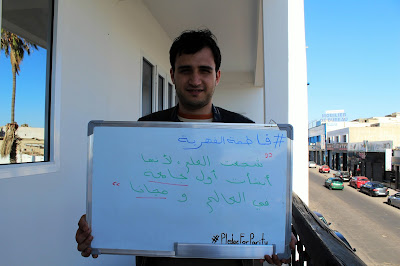 #فاطمة_الفهرية
"شجعت العلم، لأنها
أنشأت أول جامعة
في العالم و مجانا"
#PledgeForParity